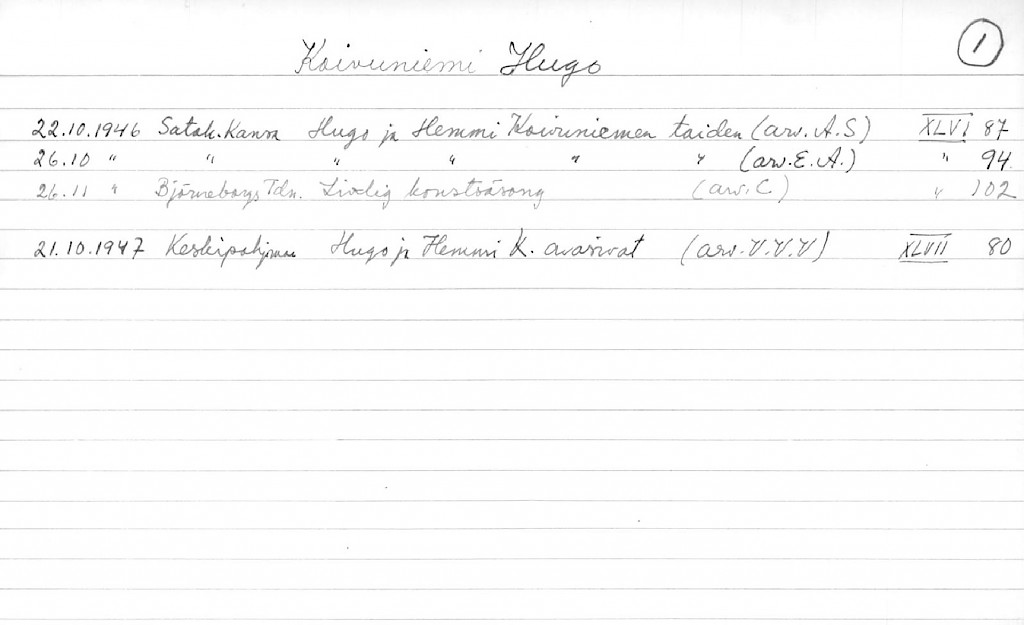 ①
Koivuniemi Hugo
22.10.1946 Satak.Kansa Hugo ja Hemmi Koivuniemen taiden (arv. A.S) XLVI 87
26.10 " " " " " " (arv. E. A.) " 94
26.11 " Björneborgs Tdn. Livlig konstsäsong (arv. C.) " 102
21.10.1947 Keskipohjmaa Hugo ja Hemmi K. avasivat (arv. V.V.V) XLVII 80